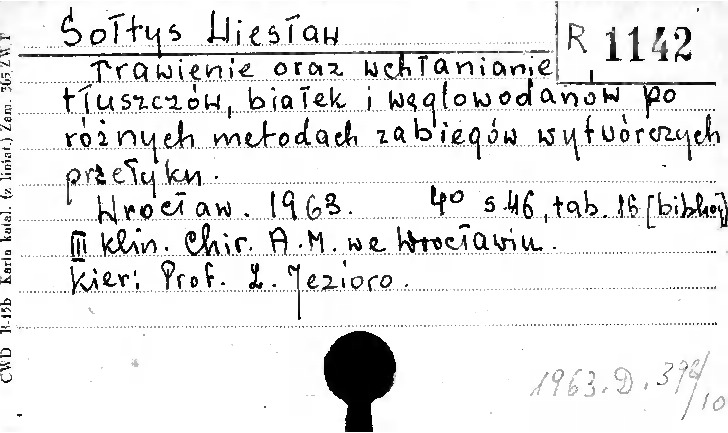 Sołtys Wiesław
R 1142
Trawienie oraz wchłanianie
tłuszczów, białek i węglowodanów po
różnych metodach zabiegów wytwórczych
przełyku.
Wrocław. 1963. 4º s.46, tab. 16 [bibliogr]
III Klin. Chir. A.M. we Wrocławiu.
Kier: Prof. L. Jezioro.
1963.D.
/10
CWD R-15b Karta katal. (z liniat.) Zam. 365 ZWP